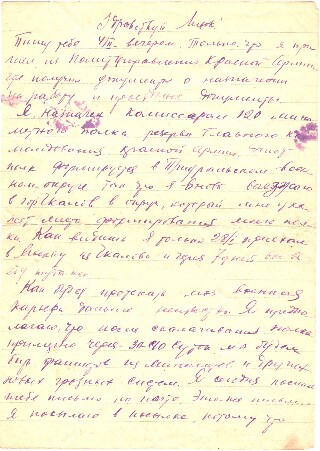 Здравствуй Люся!
Пишу тебе 4/II- вечером. Только, что я при
шел из Политуправления Красной Армии,
где получил документы о назначении
на работу и документы.
Я назначен комиссаром 120 мино
метного полка резерва Главного ко
мандования Красной Армии. Этот
полк формируется в Приуральском воен
ном округе так что я вновь выезжаю
в округ, который мне ука
жет место формирования моего пол
ка. Как видишь я только 28/I приехал
в Москву из и через 7 дней
еду
Как будет протекать моя военная
карьера дальше неизвестно. Я предпо
лагаю, что после сколачивания полка
примерно через 30-40 суток мы будем
бить фашистов из минометов и других
новых грозных систем. Я сегодня послал
тебе письмо по почте. Это же письмо
я посылаю в посылке потому что